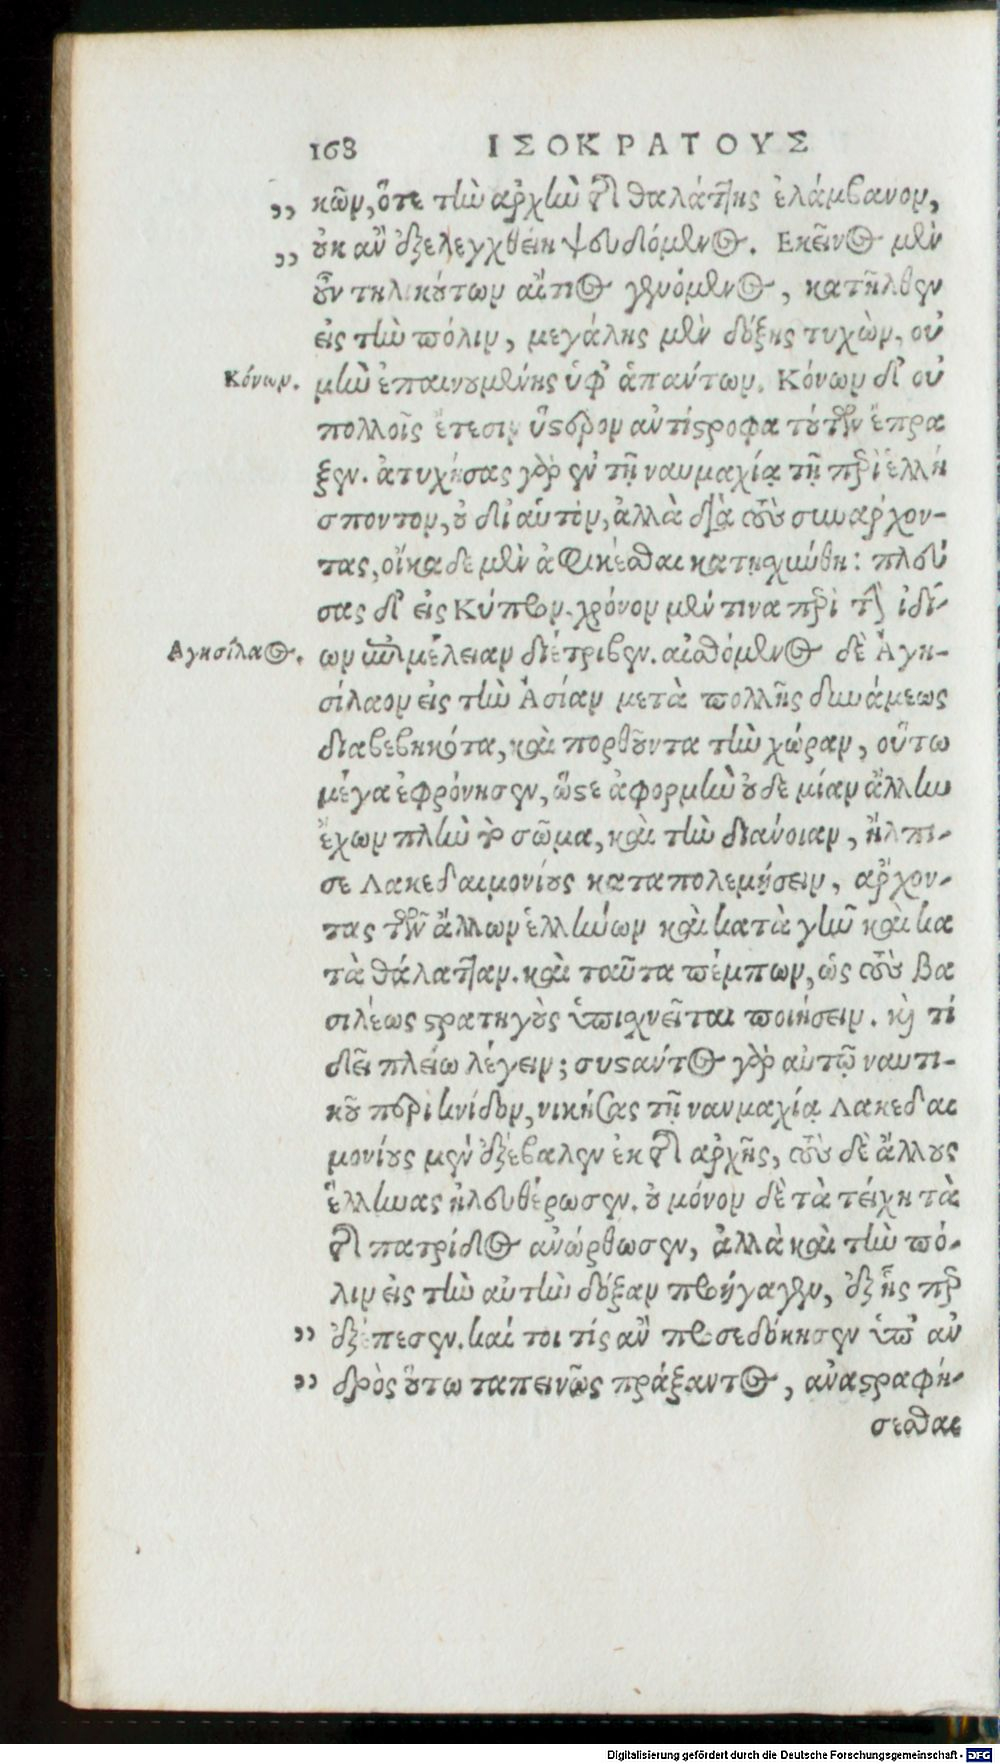 168 ΙΣΟΚΡΑΤΟΥΣ
„ κῶν, ὅτε τὴν ἀρχὴν τῆς θαλάττης ἐλάμβανον,
„ οὐκ ἂν ἐξελεγχθείη ψευδόμενος. Εκεῖνος μὲν
οὖν τηλικούτων αἴτιος γενόμενος, κατῆλθεν
εἰς τὴν πόλιν, μεγάλης μὲν δόξης τυχὼν, οὐ
Κόνων. μὴν ἐπαινουμένης ὑφ' ἁπάντων. Κόνων δ' οὐ
πολλοῖς ἔτεσιν ὕστερον ἀντίστροφα τούτων ἔπρα
ξεν. ἀτυχήσας γὰρ ἐν τῇ ναυμαχίᾳ τῇ περὶ ἑλλή
σποντον, οὐ δι' αὑτὸν, ἀλλὰ διὰ τοὺς συνάρχον-
τας, οἴκαδε μὲν ἀφικέσθαι κατῃσχύνθη: πλεύ
σας δ' εἰς Κύπρον. χρόνον μέν τινα περὶ τῶν ἰδί-
Αγησίλαος. ων ἐπιμέλειαν διέτριβεν. αἰσθόμενος δὲ Ἀγη-
σίλαον εἰς τὴν Ἀσίαν μετὰ πολλῆς δυνάμεως
διαβεβηκότα, καὶ πορθοῦντα τὴν χώραν, οὕτω
μέγα ἐφρόνησεν, ὥστε ἀφορμὴν οὐδε μίαν ἄλλην
ἔχων πλὴν τὸ σῶμα, καὶ τὴν διάνοιαν, ἤλπι-
σε Λακεδαιμονίους καταπολεμήσειν, ἄρχον-
τας τῶν ἄλλων ἑλλήνων καὶ κατὰ γῆν καὶ κα
τὰ θάλατταν. καὶ ταῦτα πέμπων, ὡς τοὺς βα
σιλέως στρατηγοὺς ὑπισχνεῖται ποιήσειν. καὶ τί
δεῖ πλείω λέγειν; συστάντος γὰρ αὐτῷ ναυτι-
κοῦ περὶ κνίδον, νικήσας τῇ ναυμαχίᾳ Λακεδαι
μονίους μὲν ἐξέβαλεν ἐκ τῆς ἀρχῆς, τοὺς δὲ ἄλλους
ἕλληνας ἠλευθέρωσεν. οὐ μόνον δὲ τὰ τείχη τὰ
τῆς πατρίδος ἀνώρθωσεν, ἀλλὰ καὶ τὴν πό-
λιν εἰς τὴν αὐτὴν δόξαν προήγαγεν, ἐξ ἧς περ
„ ἐξέπεσεν. καί τοι τίς ἂν προσεδόκησεν ὑπ' ἀν
„ δρὸς οὕτω ταπεινῶς πράξαντος, ἀναστραφή-
σεσθαι
Digitalisierung gefördert durch die Deutsche Forschungsgemeinschaft - DFG